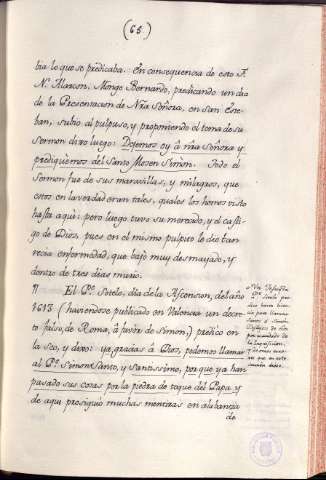 (65)
bia lo que se predicaba. En consequencia de esto F.
N. Alarcon, Monge Bernardo, predicando un dia
de la Presentacion de Nra Señora, en san Este-
ban, subio al pulpito, y proponiendo el tema de su
sermon dixo luego: Dejemos oy à nra Señora y
prediquemos del Santo Mosen Simon. Todo el
sermon fue de sus maravillas, y milagros, que
estos en la verdad eran tales, quales los hemos visto
hasta aqui: pero luego tuvo su mercado, y el casti-
go de Dios, pues en el mismo pulpito le dio tan
recia enfermedad, que bajo muy desmayado, y
dentro de tres dias murio.
¶ El Pe. Sotelo, dia de la Ascension, del año
1613 (haviendose publicado en Valencia un decre-
to falso, de Roma, à favor de Simon,) predico en
la seo, y dixo: ya, gracias à Dios, podemos llamar
al Pe. Simon Santo, y santissimo, porque ya han
pasado sus cosas por la piedra de toque del Papa, y
de aqui prosiguio muchas mentiras en alabanza
de